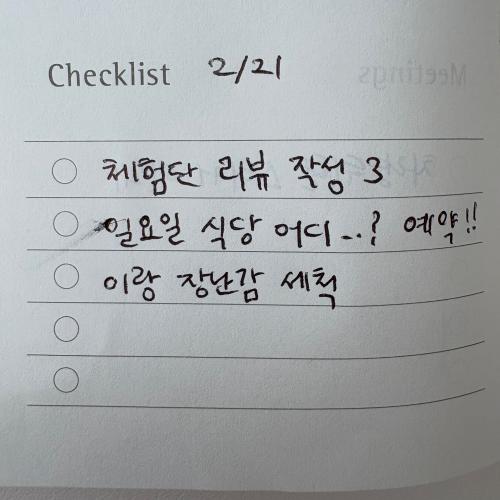 Checklist 2/21
체험단 리뷰 작성 3
일요일 식당 어디...? 예약!!
이랑 장난감 세척
Meetings